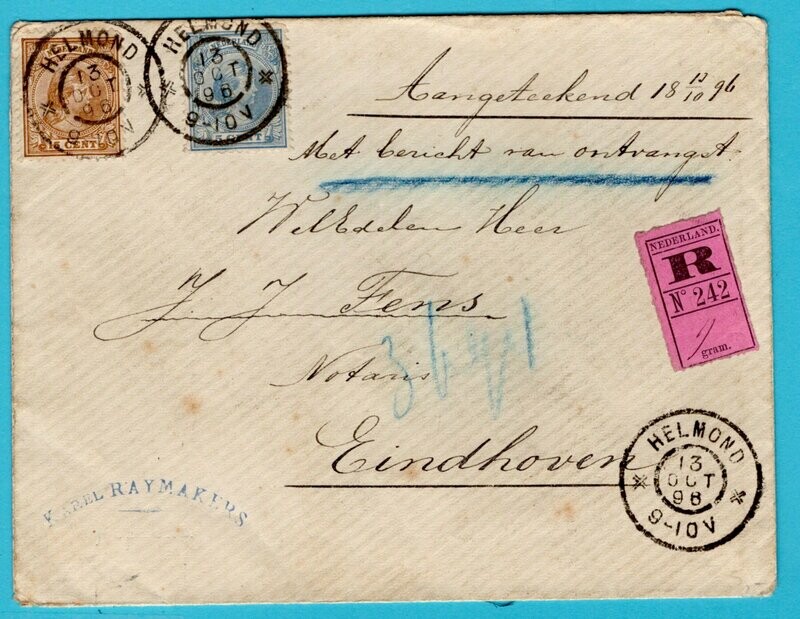 HELMOND
13
OCT
96
9-10V
15 CENT
HELMOND
13
OCT
96
9-10V
5 CENT
Aangeteekend 18 13/10 96
Met bericht van ontvangst.
WelEdelen Heer
J. J. Fens
Notaris
Eindhoven
NEDERLAND.
R
No 242
9
gram.
KAREL RAYMAKERS
HELMOND
13
OCT
96
9-10V